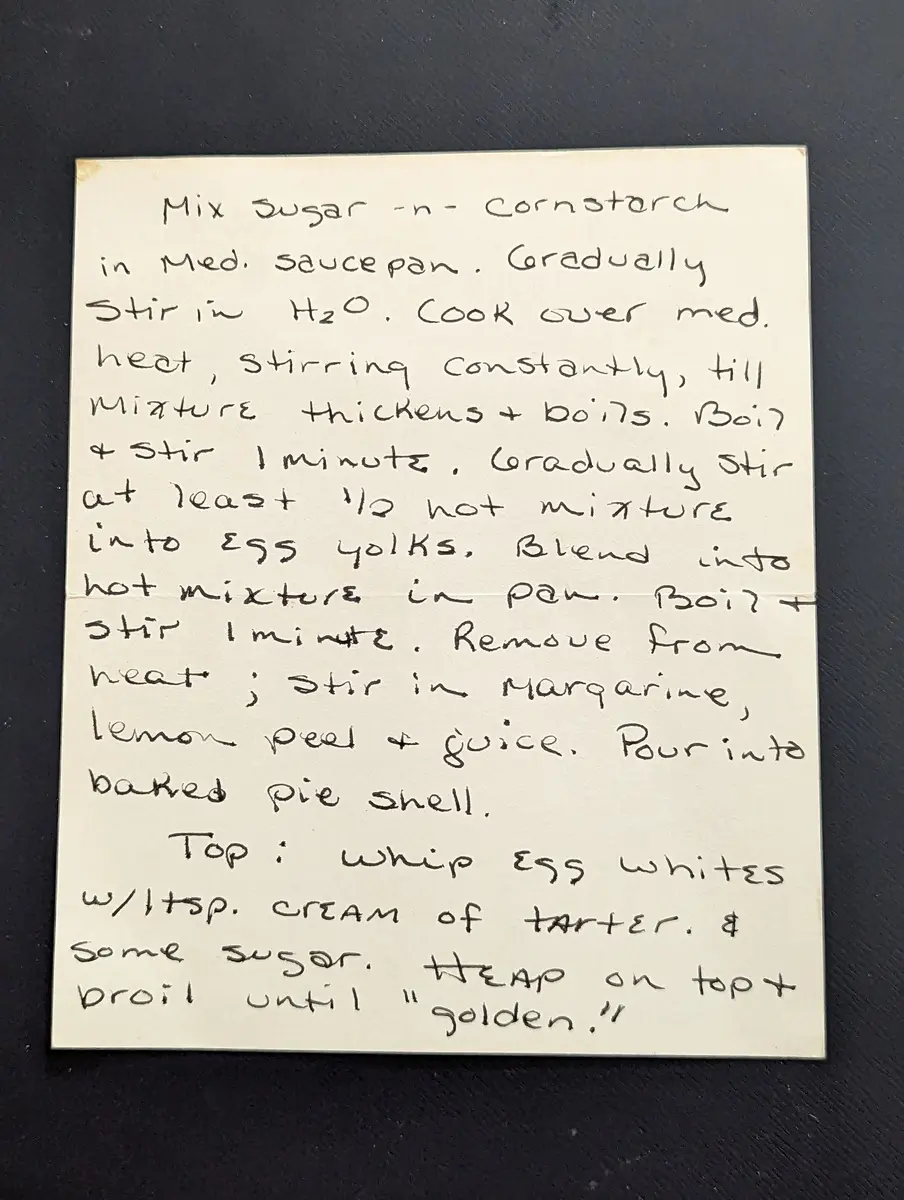 Mix sugar -n- cornstarch
in Med. saucepan. Gradually
stir in H₂O. Cook over med.
heat, stirring constantly, till
Mixture thickens + boils. Boil
+ stir 1 minute. Gradually stir
at least 1/2 hot mixture
into Egg yolks. Blend into
hot mixture in pan. Boil +
stir 1 minute. Remove from
heat; stir in Margarine,
lemon peel + juice. Pour into
baked pie shell.
Top: whip Egg whites
w/1tsp. CREAM of tArtEr. &
some sugar. HEAP on top +
broil until "golden."